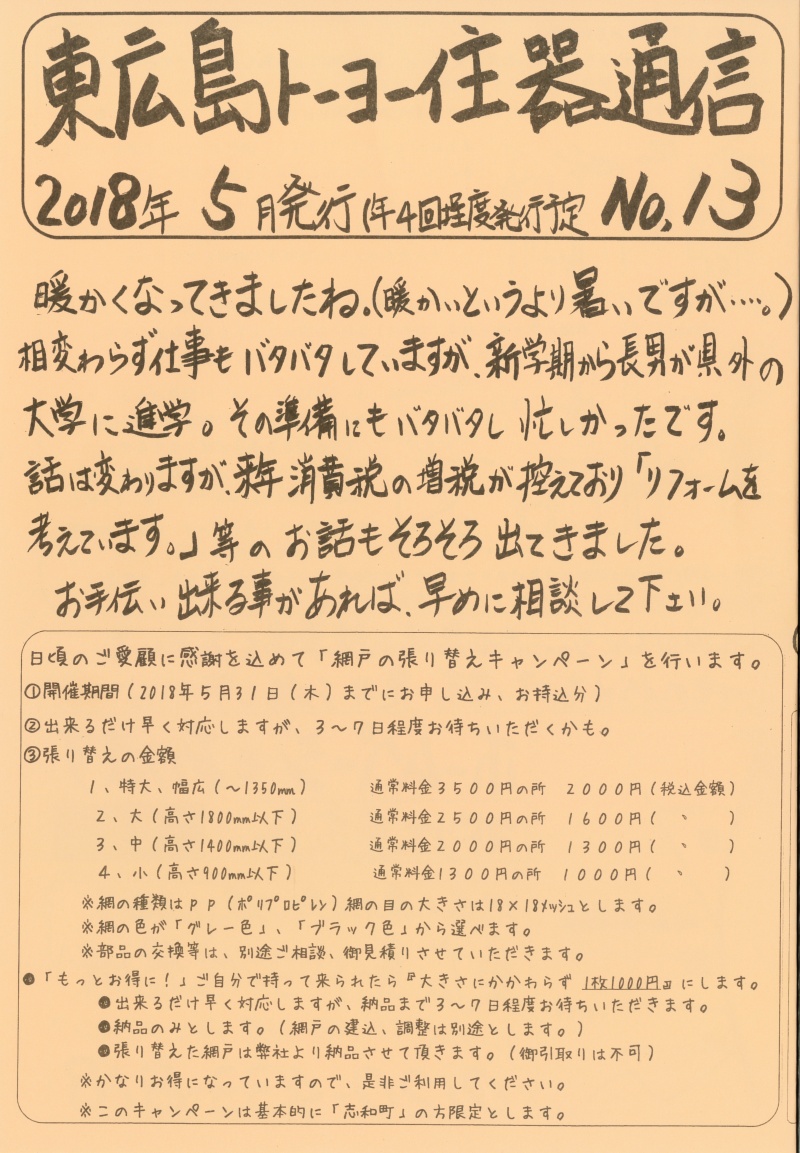 東広島トーヨー住器通信
2018年 5月発行 1年4回程度発行予定 No,13
暖かくなってきましたね。(暖かいというより暑いですが‥‥。)
相変わらず仕事もバタバタしていますが、新学期から長男が県外の
大学に進学。その準備にもバタバタし忙しかったです。
話は変わりますが、来年消費税の増税が控えており「リフォームを
考えています。」等のお話もそろそろ出てきました。
お手伝い出来る事があれば、早めに相談して下さい。
日頃のご愛顧に感謝を込めて「網戸の張り替えキャンペーン」を行います。
①開催期間(2018年5月31日(木)までにお申し込み、お持込分)
②出来るだけ早く対応しますが、3～7日程度お待ちいただくかも。
③張り替えの金額
1、特大、幅広(～1350mm) 通常料金3500円の所 2000円(税込金額)
2、大(高さ1800mm以下) 通常料金2500円の所 1600円( 〃 )
3、中(高さ1400mm以下) 通常料金2000円の所 1300円( 〃 )
4、小(高さ900mm以下) 通常料金1300円の所 1000円( 〃 )
※網の種類はPP(ポリプロピレン)網の目の大きさは18×18メッシュとします。
※網の色が「グレー色」、「ブラック色」から選べます。
※部品の交換等は、別途ご相談、御見積りさせていただきます。
●「もっとお得に!」ご自分で持って来られたら『大きさにかかわらず 1枚1000円』にします。
●出来るだけ早く対応しますが、納品まで3～7日程度お待ちいただきます。
●納品のみとします。(網戸の建込、調整は別途とします。)
●張り替えた網戸は弊社より納品させて頂きます。(御引取りは不可)
※かなりお得になっていますので、是非ご利用してください。
※このキャンペーンは基本的に「志和町」の方限定とします。